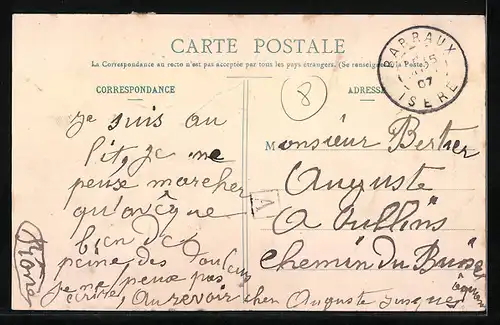 CARTE POSTALE
La Correspondance au recto n'est pas acceptée par tous les pays étrangers. (Se renseigner à la Poste.)
CORRESPONDANCE
ADRESSE
BARRAUX
07
ISERE
8
je suis au
lit je ne
peux marcher
qu'avêque
bien des
peine des douleurs
je ne peux pas
ecrire, au revoir chen Auguste jusque
A
M onsieur Bertier
Auguste
A oullins
chemin du